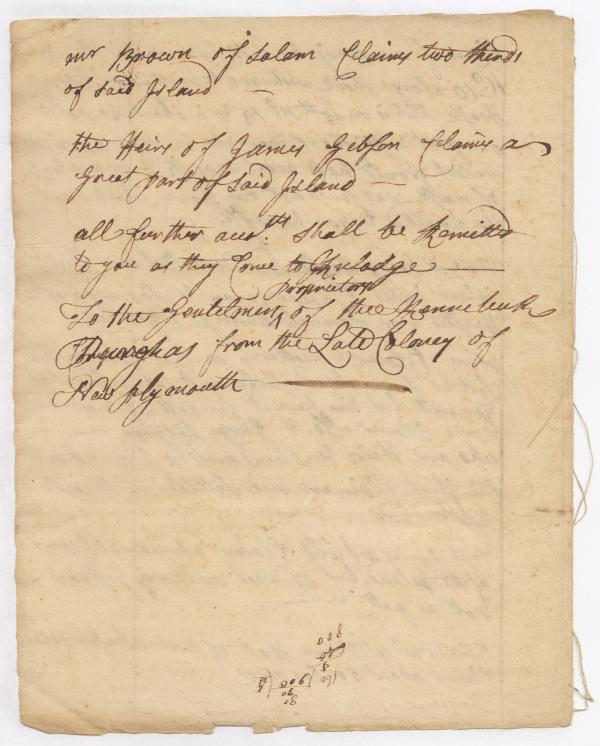 mr Brown of Salam Claims two thirds
of said Island —
the Heirs of James Gibson Claims a
Great part of said Island —
all further accots. shall be Remitted
to you as they Come to Knulodge —
proprietors
To the Gentelmen ^ of the Kennebeck
from the Late Coloney of
New plymouth —
800
160
1900
90